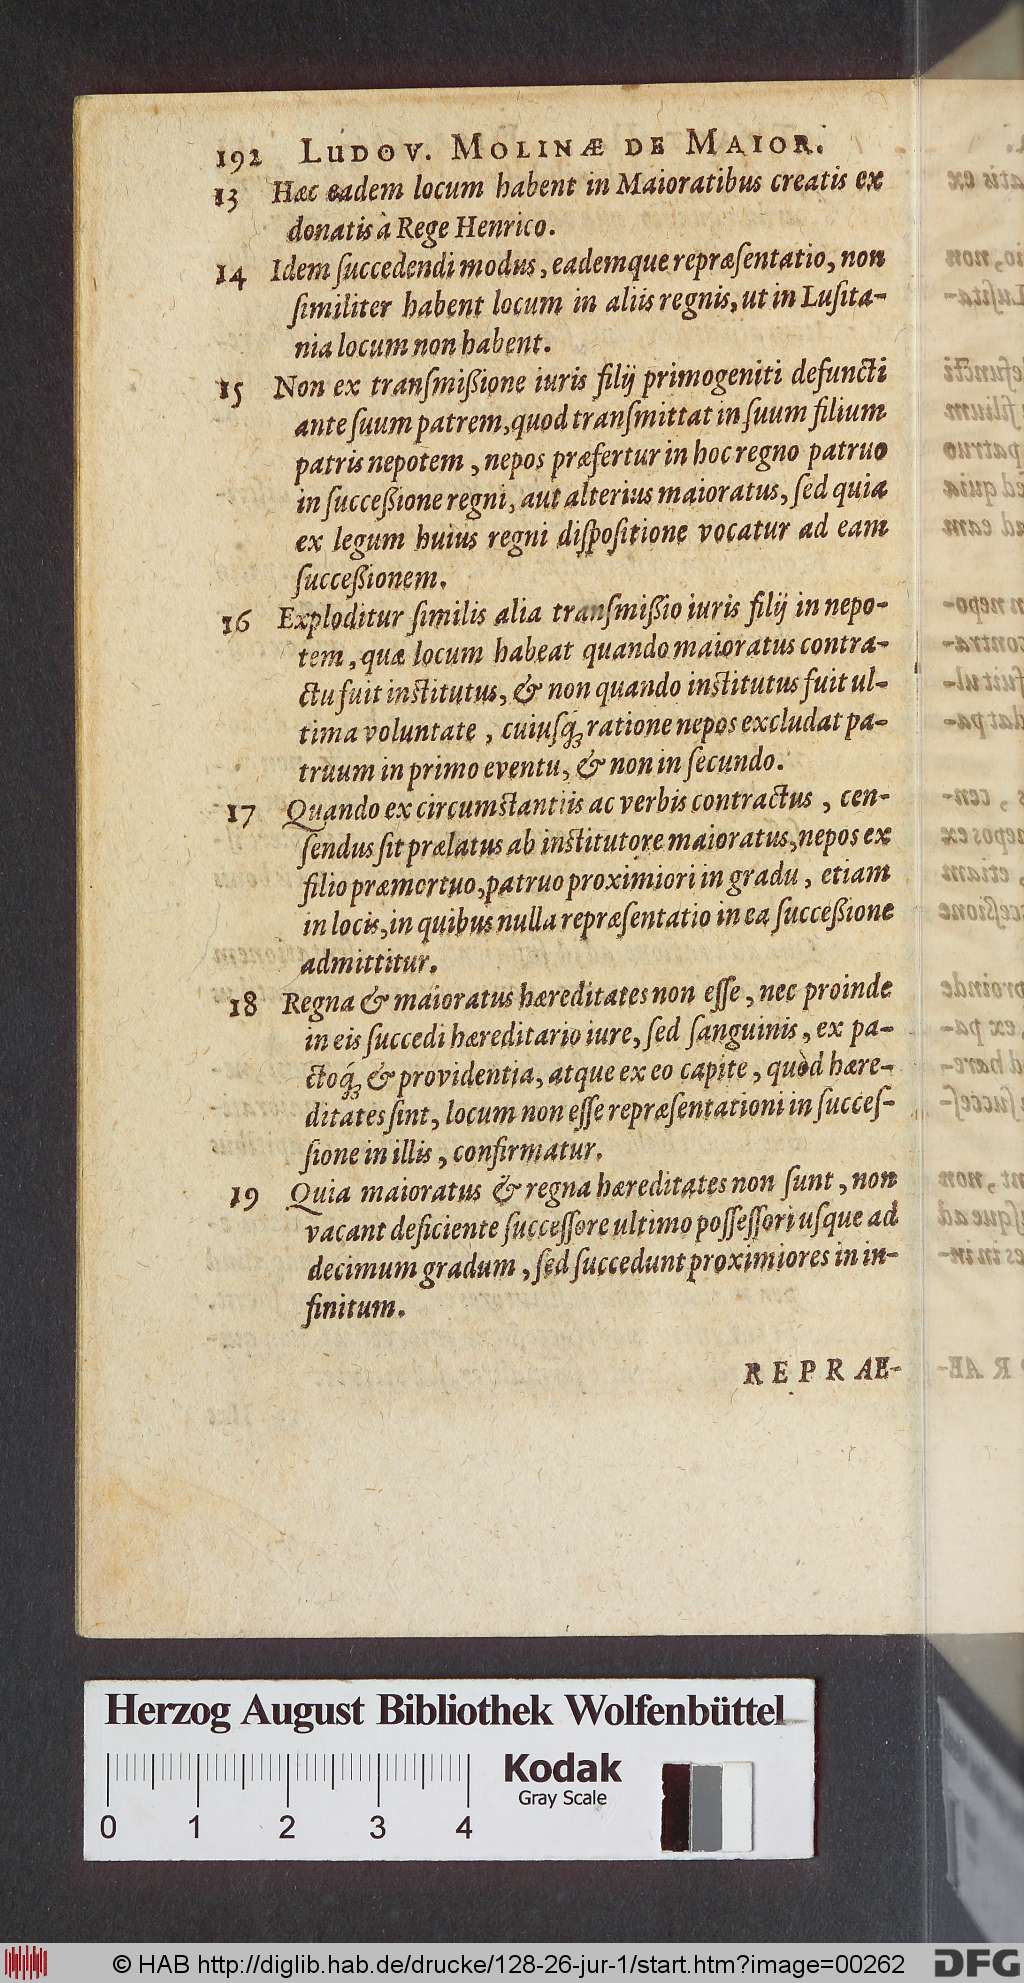 192 LUDOV. MOLINÆ DE MAIOR.
13 Hæc eadem locum habent in Maioratibus creatis ex
donatis à Rege Henrico.
14 Idem ſuccedendi modus, eademque repræſentatio, non
ſimiliter habent locum in aliis regnis, ut in Luſita-
nia locum non habent.
15 Non ex tranſmißione iuris filij primogeniti defuncti
ante ſuum patrem, quod tranſmittat in ſuum filium
patris nepotem, nepos præfertur in hoc regno patruo
in ſucceßione regni, aut alterius maioratus, ſed quia
ex legum huius regni diſpoſitione vocatur ad eam
ſucceßionem.
16 Exploditur ſimilis alia tranſmißio iuris filij in nepo-
tem, quæ locum habeat quando maioratus contra-
ctu fuit inſtitutus, & non quando inſtitutus fuit ul-
tima voluntate, cuiuſq́ꝫ ratione nepos excludat pa-
truum in primo eventu, & non in ſecundo.
17 Quando ex circumſtantiis ac verbis contractus, cen-
ſendus ſit prælatus ab inſtitutore maioratus, nepos ex
filio præmortuo, patruo proximiori in gradu, etiam
in locis, in quibus nulla repræſentatio in ea ſucceßione
admittitur.
18 Regna & maioratus hæreditates non eſſe, nec proinde
in eis ſuccedi hæreditario iure, ſed ſanguinis, ex pa-
ctoq́ꝫ & providentia, atque ex eo capite, quòd hære-
ditates ſint, locum non eſſe repræſentationi in ſucceſ-
ſione in illis, confirmatur.
19 Quia maioratus & regna hæreditates non ſunt, non
vacant deficiente ſucceſſore ultimo poſſeſſori uſque ad
decimum gradum, ſed ſuccedunt proximiores in in-
finitum.
REPRAE-
Herzog August Bibliothek Wolfenbüttel
Kodak
Gray Scale
0 1 2 3 4
© HAB http://diglib.hab.de/drucke/128-26-jur-1/start.htm?image=00262
DFG